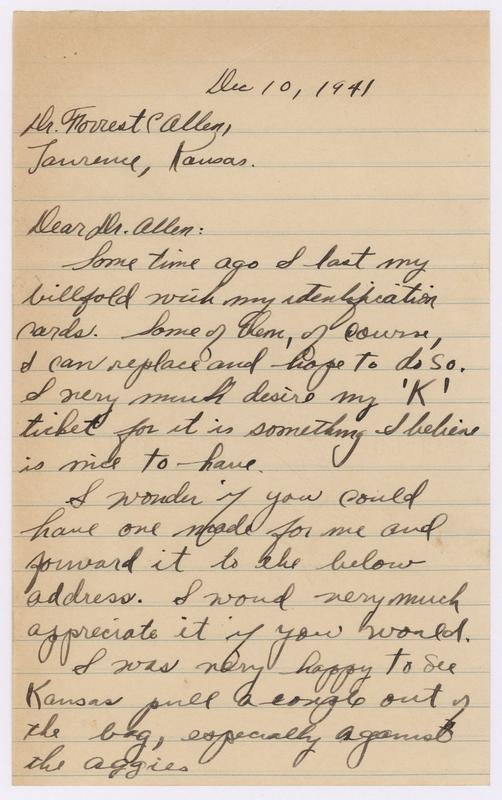 Dec 10, 1941
Dr. Forrest C Allen,
Lawrence, Kansas.
Dear Dr. Allen:
Some time ago I lost my
billfold with my identification
cards. Some of them, of course,
I can replace and hope to do so.
I very much desire my 'K'
ticket for it is something I believe
is nice to have.
I wonder if you could
have one made for me and
forward it to the below
address. I woud very much
appreciate it if you would.
I was very happy to see
Kansas pull a couple out of
the bag, especially against
the aggies